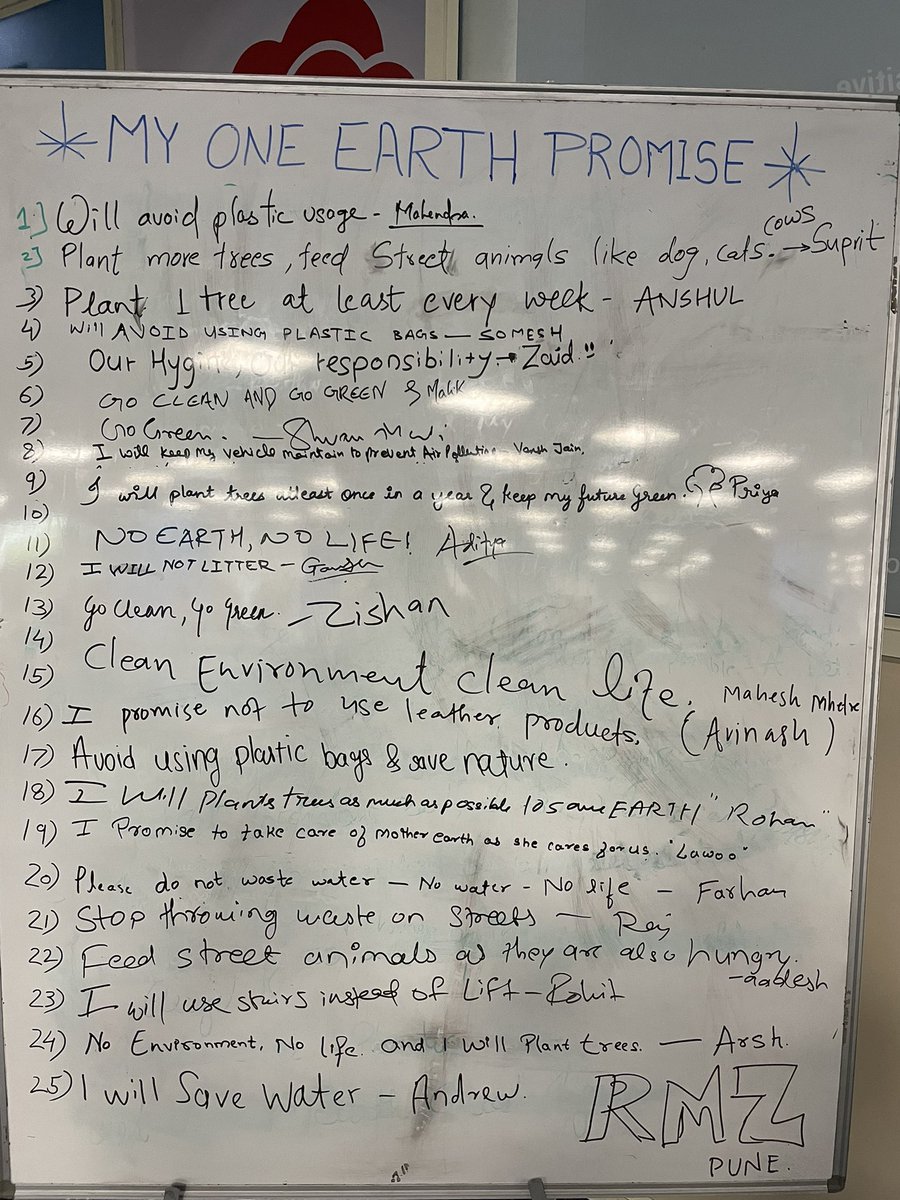 MY ONE EARTH PROMISE
1.] Will avoid plastic usage - Mahendra.
cows
2] Plant more trees, feed Street animals like dog, cats. → Suprit
3) Plant 1 tree at least every week - ANSHUL
4) Will AVOID USING PLASTIC BAGS — SOMESH
5) Our Hygine, Our responsibility. - Zaid.
6) GO CLEAN AND GO GREEN & Malik
7) Go Green.
8) I will keep my vehicle maintain to prevent Air Pollution - Vansh Jain.
9) I will plant trees atleast once in a year & keep my future Green. Priya
10)
11) NO EARTH, NO LIFE! Aditya
12) I WILL NOT LITTER -
13) Go Clean, Go green. - Zishan
14)
15) Clean Environment clean life. Mahesh Mhetre
16) I promise not to use leather products. (Avinash)
17) Avoid using plastic bags & save nature.
18) I will plants trees as much as possible to save EARTH "Rohan"
19) I Promise to take care of mother earth as she cares for us. "Lawoo"
20) Please do not waste water - No water - No life - Farhan
21) Stop throwing waste on streets - Raj
22) Feed street animals as they are also hungry.
- aadesh
23) I will use stairs instead of Lift - Rohit
24) No Environment, No life. and I will Plant trees. — Arsh.
25) I will Save Water - Andrew.
RMZ
PUNE.